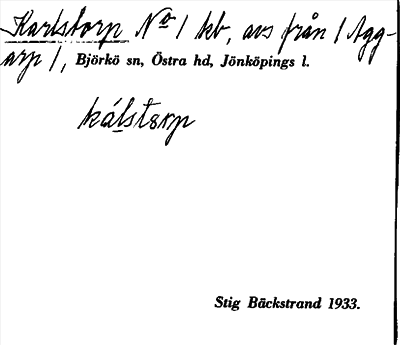 Karlstorp No 1 kb, avs från 1 Agg-
arp 1, Björkö sn, Östra hd, Jönköpings l.
kálstɛrp
Stig Bäckstrand 1933.